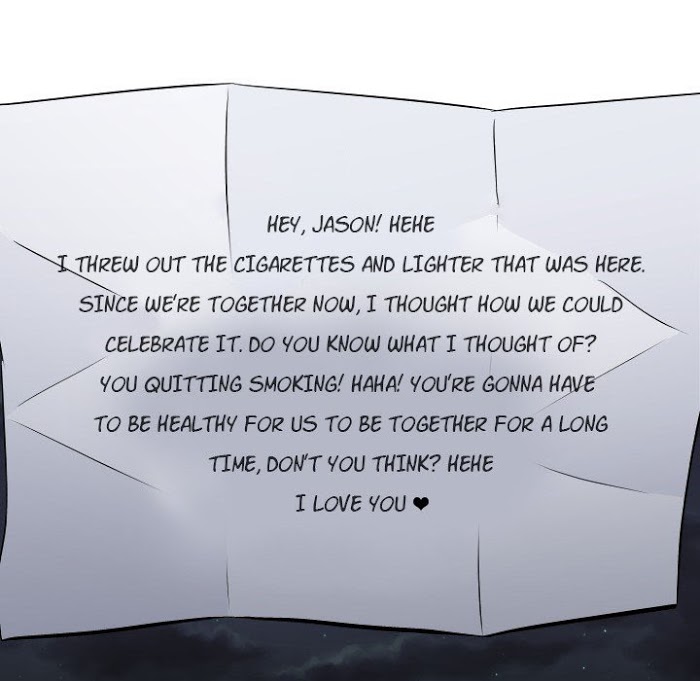 HEY, JASON! HEHE
I THREW OUT THE CIGARETTES AND LIGHTER THAT WAS HERE.
SINCE WE'RE TOGETHER NOW, I THOUGHT HOW WE COULD
CELEBRATE IT. DO YOU KNOW WHAT I THOUGHT OF?
YOU QUITTING SMOKING! HAHA! YOU'RE GONNA HAVE
TO BE HEALTHY FOR US TO BE TOGETHER FOR A LONG
TIME, DON'T YOU THINK? HEHE
I LOVE YOU ❤